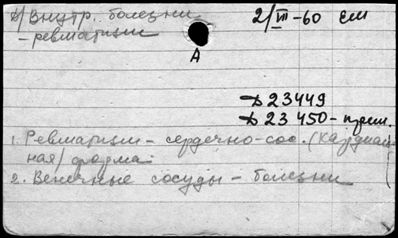 в) Внутр. болезни 2/III-60 ем
- ревматизм
А
Д 23449
Д 23 450 - прил.
1. Ревматизм - сердечно-сос. (кардиаль-
ная) форма.
2. Венечные сосуды - болезни